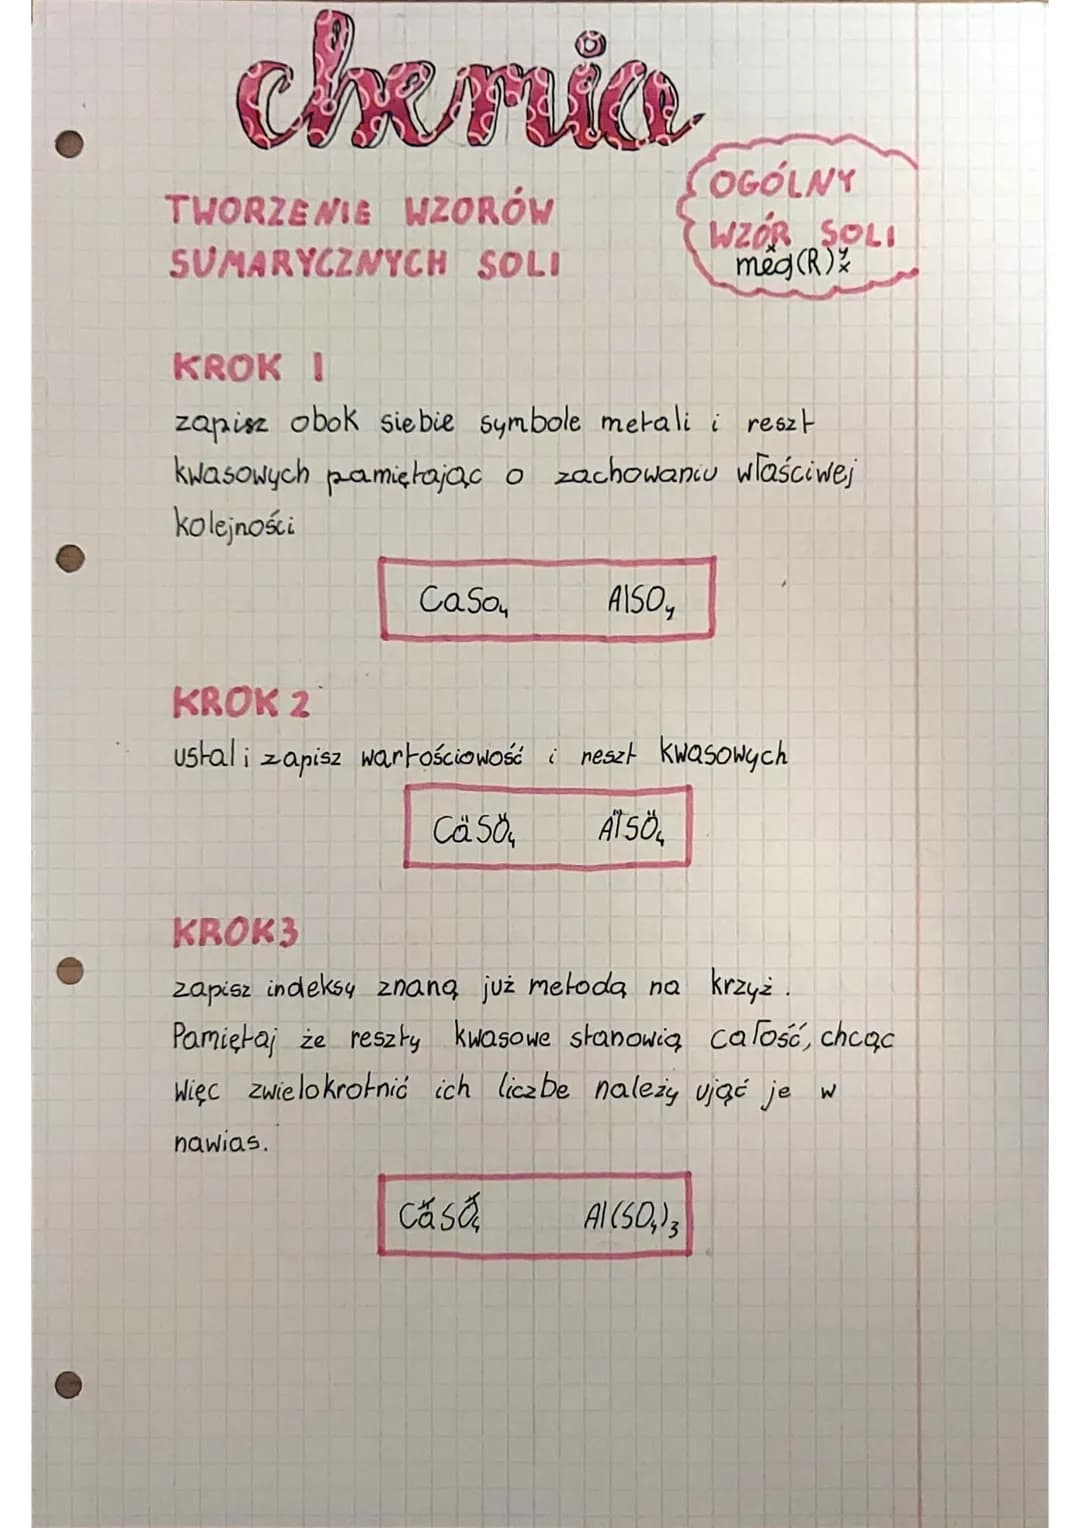 chemia
TWORZENIE WZORÓW
SUMARYCZNYCH SOLI
OGÓLNY
WZÓR SOLI
KROK 1
zapisz obok siebie symbole metali i reszt
kwasowych pamiętając o zachowaniu właściwej
kolejności
CaSo₄ AlSO₄
KROK 2
ustal i zapisz wartościowość i reszt kwasowych
CaSO₄ AlSO₄
KROK 3
zapisz indeksy znaną już metodą na krzyż.
Pamiętaj że reszty kwasowe stanowią całość, chcąc
więc zwielokrotnić ich liczbe należy ująć je w
nawias.
CaSO₄ Al(SO₄)₃